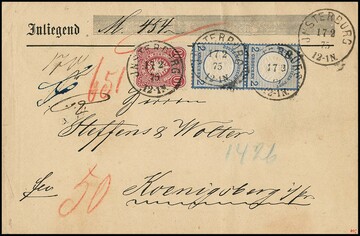 Inliegend M. 454.
INSTERBURG
17 2
75
12-1N.
INSTERBURG
17 2
75
12-1N.
INSTERBURG
17 2
75
12-1N.
2 2
651
Herren
Steffens & Wolter
1426
50
Koenigsberg i/Pr.